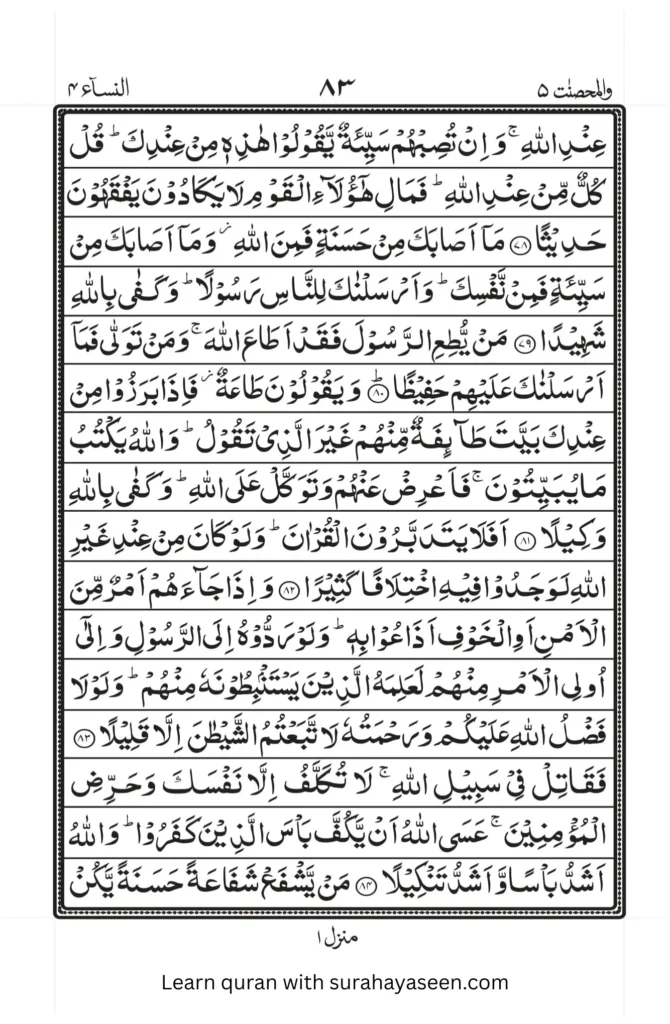 والمحصنت ۵ ۸۳ النسآء ۴
عِنْدِ اللّٰهِ ۚ وَ اِنْ تُصِبْهُمْ سَیِّئَةٌ یَّقُوْلُوْا هٰذِهٖ مِنْ عِنْدِكَ ؕ قُلْ
كُلٌّ مِّنْ عِنْدِ اللّٰهِ ؕ فَمَالِ هٰۤؤُلَآءِ الْقَوْمِ لَا یَكَادُوْنَ یَفْقَهُوْنَ
حَدِیْثًا ﴿۷۸﴾ مَاۤ اَصَابَكَ مِنْ حَسَنَةٍ فَمِنَ اللّٰهِ ؗ وَ مَاۤ اَصَابَكَ مِنْ
سَیِّئَةٍ فَمِنْ نَّفْسِكَ ؕ وَ اَرْسَلْنٰكَ لِلنَّاسِ رَسُوْلًا ؕ وَ كَفٰی بِاللّٰهِ
شَهِیْدًا ﴿۷۹﴾ مَنْ یُّطِعِ الرَّسُوْلَ فَقَدْ اَطَاعَ اللّٰهَ ۚ وَ مَنْ تَوَلّٰی فَمَاۤ
اَرْسَلْنٰكَ عَلَیْهِمْ حَفِیْظًا ﴿ؕ۸۰﴾ وَ یَقُوْلُوْنَ طَاعَةٌ ؗ فَاِذَا بَرَزُوْا مِنْ
عِنْدِكَ بَیَّتَ طَآىِٕفَةٌ مِّنْهُمْ غَیْرَ الَّذِیْ تَقُوْلُ ؕ وَ اللّٰهُ یَكْتُبُ
مَا یُبَیِّتُوْنَ ۚ فَاَعْرِضْ عَنْهُمْ وَ تَوَكَّلْ عَلَی اللّٰهِ ؕ وَ كَفٰی بِاللّٰهِ
وَكِیْلًا ﴿۸۱﴾ اَفَلَا یَتَدَبَّرُوْنَ الْقُرْاٰنَ ؕ وَ لَوْ كَانَ مِنْ عِنْدِ غَیْرِ
اللّٰهِ لَوَجَدُوْا فِیْهِ اخْتِلَافًا كَثِیْرًا ﴿۸۲﴾ وَ اِذَا جَآءَهُمْ اَمْرٌ مِّنَ
الْاَمْنِ اَوِ الْخَوْفِ اَذَاعُوْا بِهٖ ؕ وَ لَوْ رَدُّوْهُ اِلَی الرَّسُوْلِ وَ اِلٰۤی
اُولِی الْاَمْرِ مِنْهُمْ لَعَلِمَهُ الَّذِیْنَ یَسْتَنْۢبِطُوْنَهٗ مِنْهُمْ ؕ وَ لَوْ لَا
فَضْلُ اللّٰهِ عَلَیْكُمْ وَ رَحْمَتُهٗ لَاتَّبَعْتُمُ الشَّیْطٰنَ اِلَّا قَلِیْلًا ﴿۸۳﴾
فَقَاتِلْ فِیْ سَبِیْلِ اللّٰهِ ۚ لَا تُكَلَّفُ اِلَّا نَفْسَكَ وَ حَرِّضِ
الْمُؤْمِنِیْنَ ۚ عَسَی اللّٰهُ اَنْ یَّكُفَّ بَاْسَ الَّذِیْنَ كَفَرُوْا ؕ وَ اللّٰهُ
اَشَدُّ بَاْسًا وَّ اَشَدُّ تَنْكِیْلًا ﴿۸۴﴾ مَنْ یَّشْفَعْ شَفَاعَةً حَسَنَةً یَّكُنْ
منزل ۱
Learn quran with surahayaseen.com